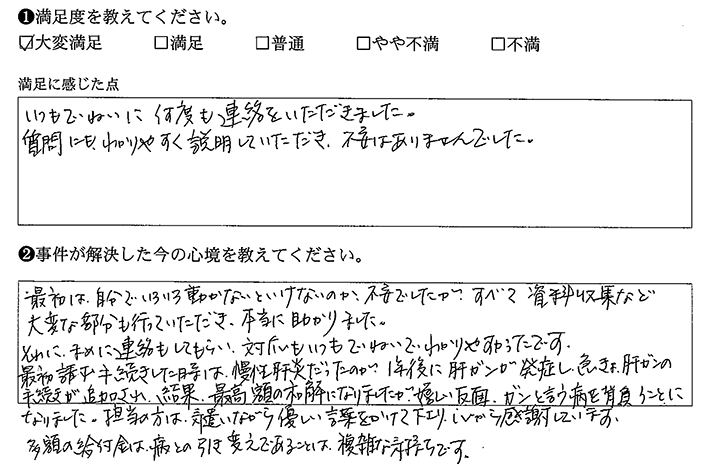 ❶満足度を教えてください。
☑大変満足 □満足 □普通 □やや不満 □不満
満足に感じた点
いつもていねいに何度も連絡をいただきました。
質問にも、わかりやすく説明していただき、不安はありませんでした。
❷事件が解決した今の心境を教えてください。
最初は、自分でいろいろ動かないといけないのか、不安でしたが、すべて資料収集など
大変な部分も行っていただき、本当に助かりました。
それに、まめに連絡もしてもらい、対応もいつもていねいでわかりやすかったです。
最初請む手続きした時は、慢性肝炎だったのが、1年後に肝ガンが発症し、急きょ、肝ガンの
手続が追加され、結果、最高額の和解になりましたが嬉しい反面、ガンと言う病を背負うことに
なりました。担当の方は、気遣いながら優しい言葉をかけて下さり、心から感謝しています。
多額の給付金は、病との引き変えであることは、複雑な気持ちです。